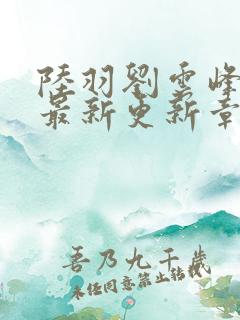 陸羽劉雲峰
最新更新章
吾乃九千歲
未经同意禁止转载